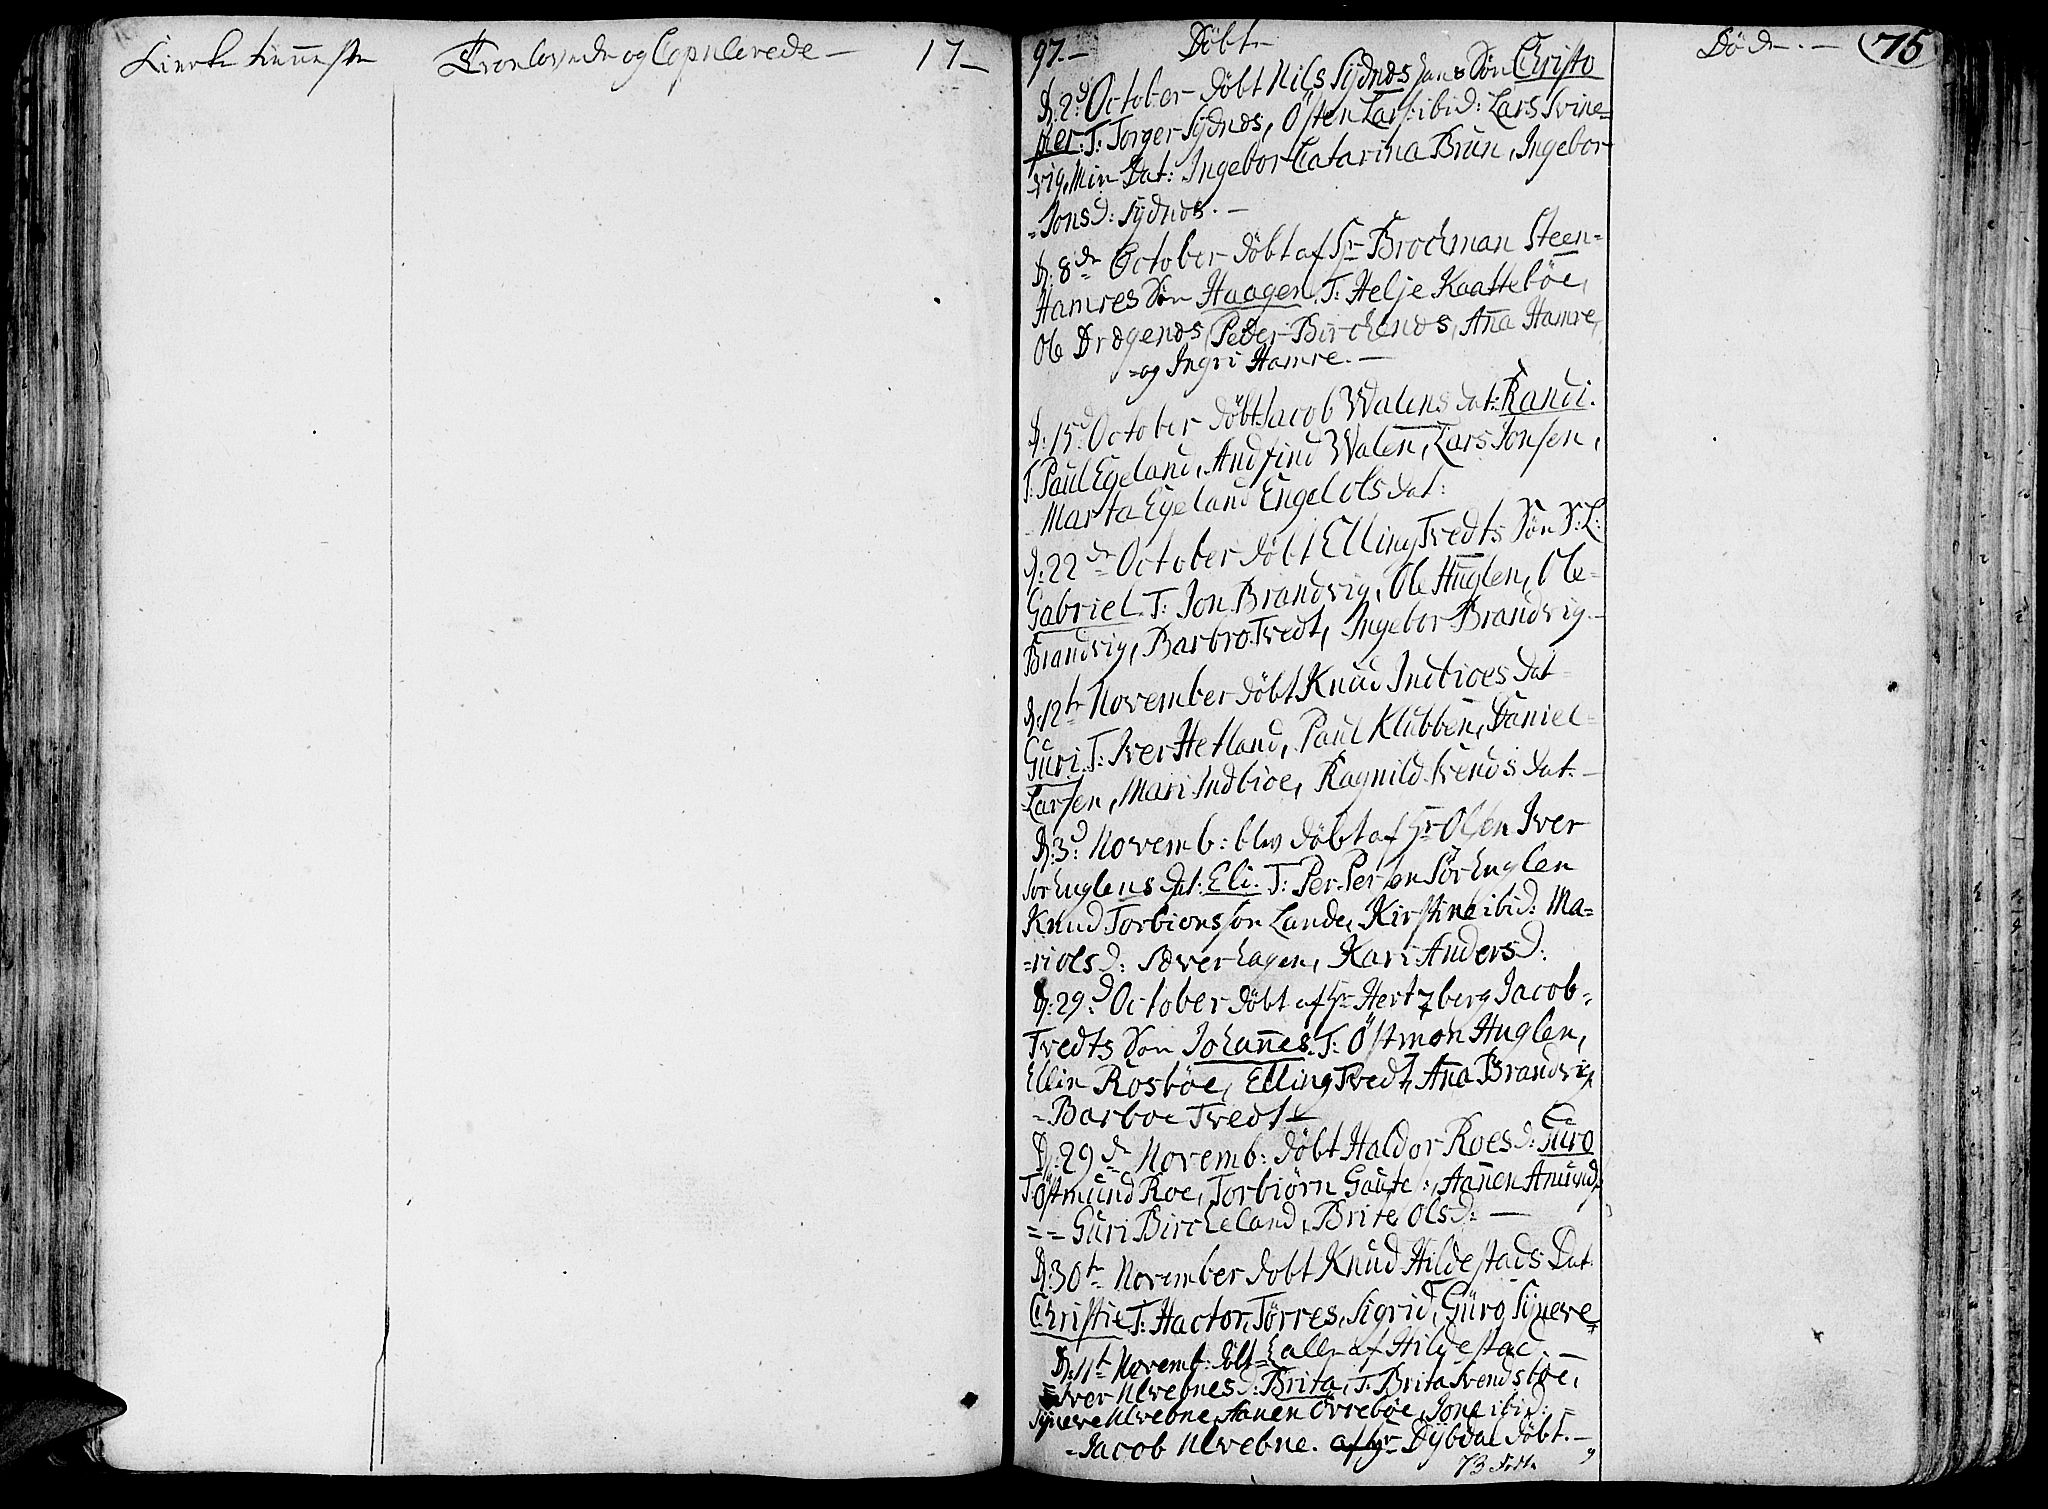 Kierke tienneste
Troelovede og Copulerede — 17—
97.— Döbte
Döde. — 75
D: 2d October döbt Nils Sÿdnæs hans Sön Christo
pher. T: Torger Sÿdnæs, Östen Lars: ibid: Lars Svine=
vig, Min Dat: Ingebor Catarina Brun, Ingebor
=Jonsd: Sÿdnæs. —
D: 8de October döbt af Hr Brochman Steen=
Hamres Sön Haagen, T: Helje Kaattebøe,
Ole Drægenæs, Peder Birchenæs, Aña Hamre,
=og Ingri Hamre. —
D: 15d October döbt Jacob Walens dat: Randi.
T: Paul Egeland, Andfind Walen, Lars Jonsen,
Marta Egeland Engel Olsdat:
D: 22de October döbt Elling Tvedts Sön S: L:
Gabriel. T: Jon Brandvig, Ole Huglen, Ole=
Brandvig, Barbro Tvedt, Ingebor Brandvig.—
D: 12te November döbt Knud Indbioes Dat
Guri. T: Iver Hetland, Paul Klubben, Daniel=
Larsen, Mari Indbioe, Ragnild Svends dat. —
D: 3d: Novemb: blev döbt af Hr Olsen Iver
Sör Huglens dat: Eli. T: Per Persen Sör Huglen
Knud Torbionsson Lande, Kirstine ibid: Ma=
=ri Olsd: Sæverhagen, Kari Andersd:
D: 29d October döbt af Hr Hertzberg Jacob=
Tvedts Sön Johañes. T: Östmon Huglen,
Ellin Rosbøe, Elling Tvedt, Aña Brandvig
=Barboe Tvedt—
D: 29de Novemb: döbt Haldor Roes d: Guro
T: Östmund Roe, Torbiörn Gaute s:, Aanen Amunds
== Guri Bircheland, Brite Olsd: —
D: 30te November döbt Knud Hildestads Dat:
Christie T: Hactor, Törres, Sigrid, Guro, Sÿneve
=alle af Hildestad. —
D: 11te Novemb: döbt
=Iver Ulvebnes d: Brita, T: Brita Svendsbøe,
Sÿneve Ulvebne, Aanen Övrebøe, Jone ibid: =
=Jacob Ulvebne. af Hr Dÿbdal döbt. —
73 födte